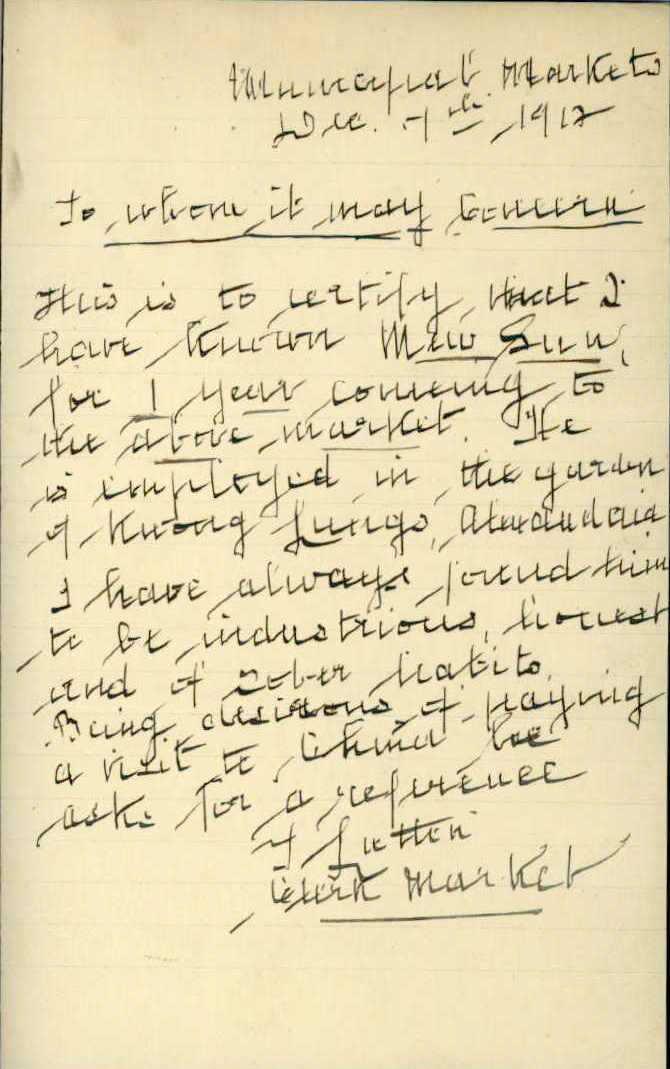 Municipal Markets
Dec. 7th 1912
To whom it may Concern
This is to certify that I
have known Mew Sun,
for 1 year comeing to
the above market. He
is employed in the garden
of Kwong Lungs, Alexandria
I have always found him
to be industrious, honest
and of sober habits.
Being desirous of paying
a visit to China he
asks for a reference
Clerk Market